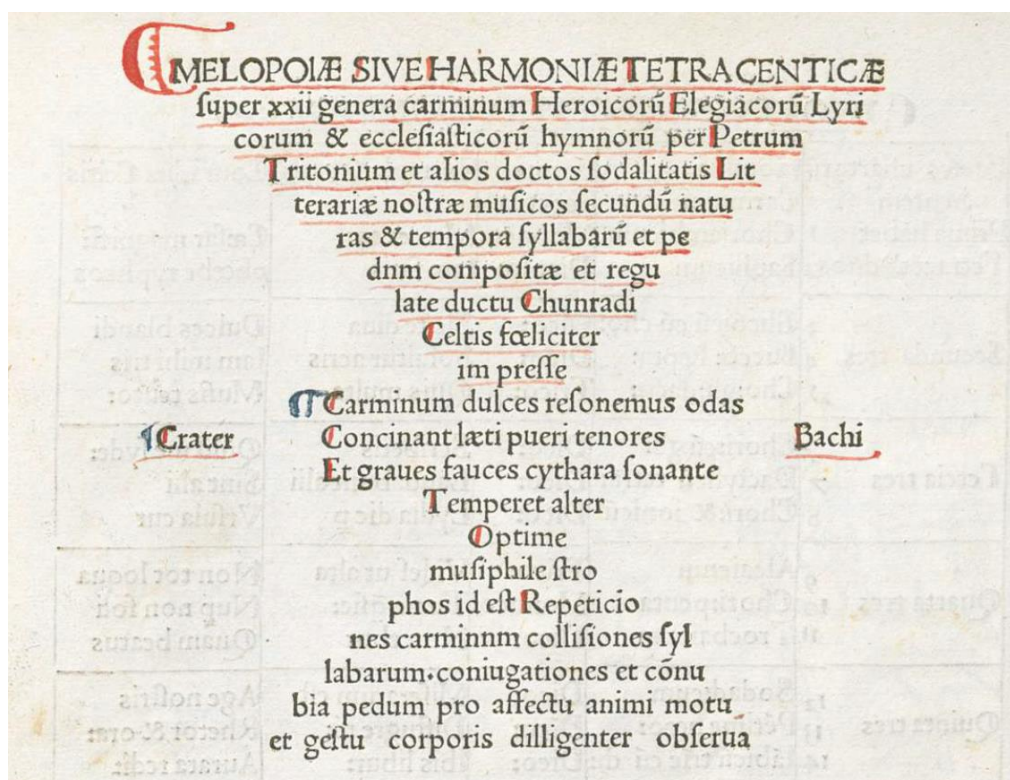 MELOPOIÆ SIVE HARMONIÆ TETRACENTICÆ
ſuper xxii genera carminum Heroicorū Elegiacorū Lyri
corum & eccleſiaſticorū hymnorū per Petrum
Tritonium et alios doctos ſodalitatis Lit
terariæ noſtræ muſicos ſecundū natu
ras & tempora ſyllabarū et pe
dnm compoſitæ et regu
late ductu Chunradi
Celtis fœliciter
im preſſe
Carminum dulces reſonemus odas
Crater Concinant læti pueri tenores Bachi
Et graues fauces cythara ſonante
Temperet alter
Optime
muſiphile ſtro
phos id eſt Repeticio
nes carminnm colliſiones ſyl
labarum.coniugationes et cōnu
bia pedum pro affectu animi motu
et geſtu corporis dilligenter obſerua